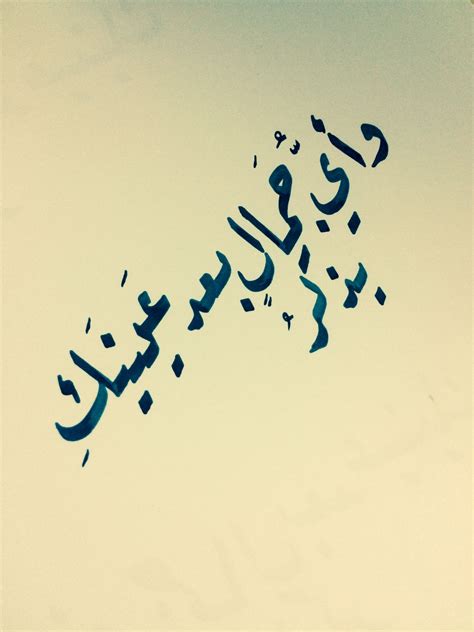 وأيُّ جَمالٍ بعد عَينيَكِ
يذكرُ